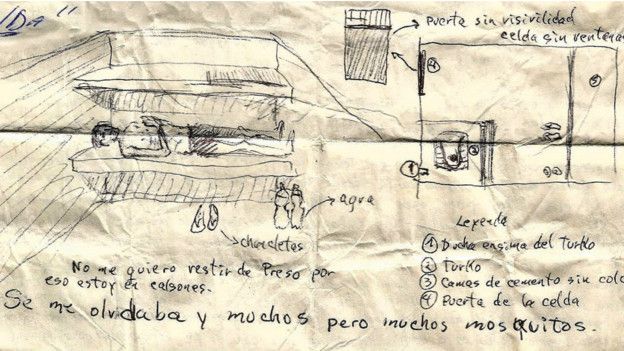 puerta sin visivilidad
celda sin ventana
4
3
2
1
agua
chancletas
Leyenda
1 Ducha ensima del Turko
2 Turko
3 Camas de cemento sin colc
4 Puerta de la celda
No me quiero vestir de Preso por
eso estoy en calsones.
Se me olvidaba y muchos pero muchos mosquitos.